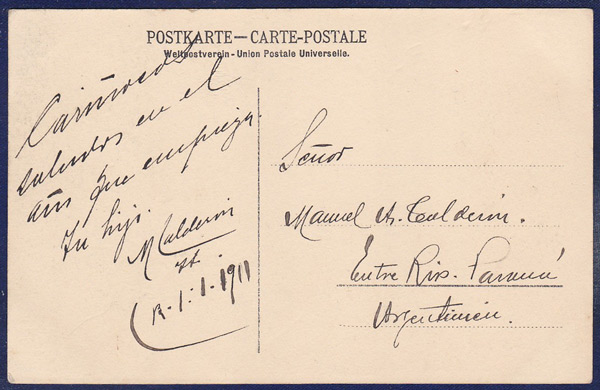 POSTKARTE — CARTE-POSTALE
Weltpostverein - Union Postale Universelle.
Cariñosos
saludos en el
año que empieza.
Tu hijo.
M Calderón
R-1-1-1911
Señor
Manuel A. Calderón.
Entre Ríos. Paraná
Argentina.